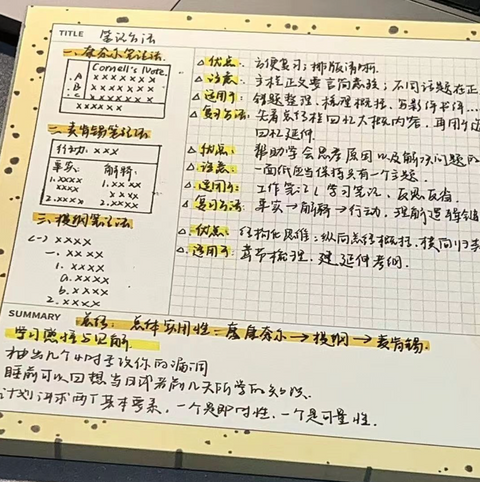 TITLE 笔记方法
一. 康奈尔笔记法
Cornell's Note.
A x x x x x x x
B x x x x x x x
C x x x x x x x
x x x x x x
△ 优点: 方便复习; 排版清晰.
△ 注意: 主栏正文要言简意赅; 不同话题在正
△ 适用于: 错题整理, 梳理概括,
△ 复习方法: 先看总结栏回忆大概内容, 再用
回忆延伸.
二. 麦肯锡笔记法
行动: x x x
事实: 解释:
1. xxxx 1. xx xx
xxxx x x xx
2. xxxx 2. xxxx
△ 优点: 帮助学会思考原因以及解决问题的
△ 注意: 一面纸应当保持只有一个主题.
△ 适用于: 工作笔记 学习笔记, 反思反省.
△ 复习方法: 事实→解释→行动, 理解逻辑
三. 提纲笔记法
(一) x x x x
一. x x x x
1. x x x x
a. x x x x
b. x x x x
2. x x x x
△ 优点: 结构化思维: 纵向总结概括, 横向归类
△ 适用于: 章节梳理, 延伸考纲.
SUMMARY 总结: 总体实用性: 康奈尔→提纲→麦肯锡.
学习思维与见解.
抽出几个小时去攻你的漏洞
睡前可以回想当日或者前几天所学的知识.
计划讲求两个基本要素, 一个是即时性, 一个是可量性.